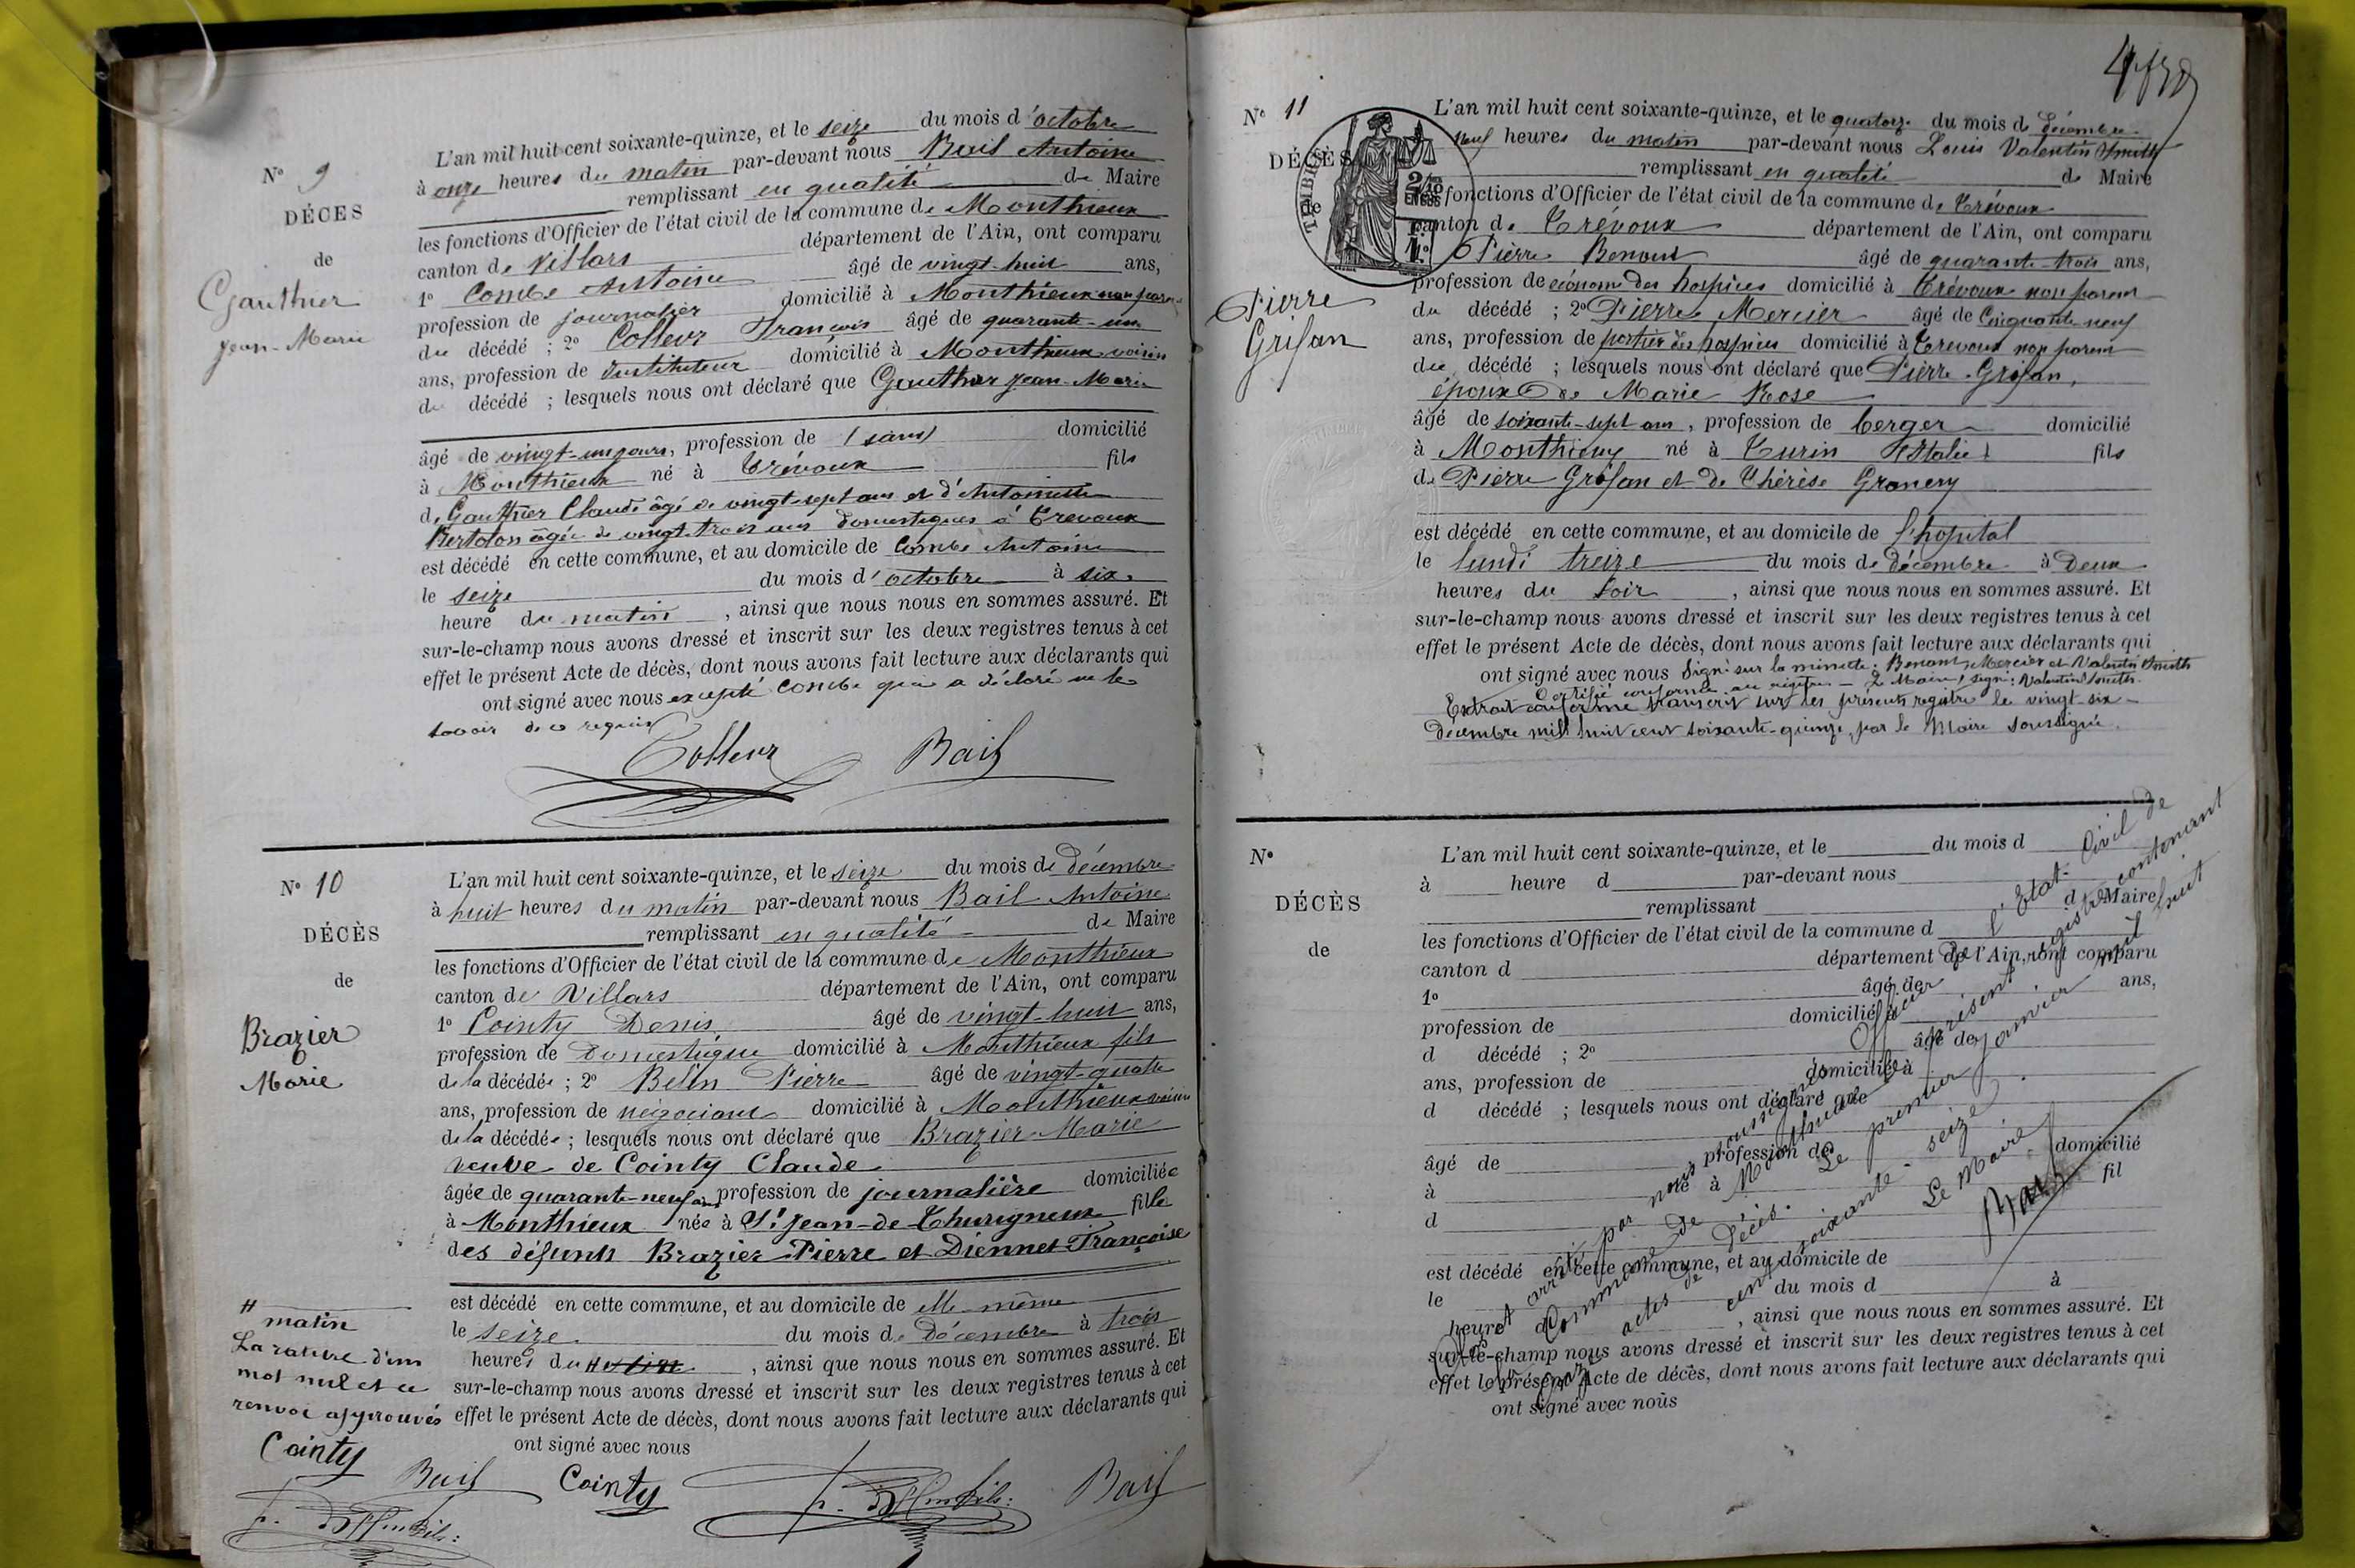 N° 9
DÉCES
de
Gauthier
Jean-Marie
L'an mil huit cent soixante-quinze, et le seize du mois d'octobre
à onze heures du matin par-devant nous Bail Antoine
remplissant en qualité de Maire
les fonctions d'Officier de l'état civil de la commune de Monthieux
canton de Villars département de l'Ain, ont comparu
1° Combe Antoine âgé de vingt-huit ans,
profession de journalier domicilié à Monthieux non parent
du décédé ; 2° Colleur François âgé de quarante-un
ans, profession de Instituteur domicilié à Monthieux voisin
du décédé ; lesquels nous ont déclaré que Gauthier Jean-Marie
âgé de vingt-un jours, profession de (sans) domicilié
à Monthieux né à Trévoux fils
de Gauthier Claude âgé de vingt-sept ans et d'Antoinette
Bertolon âgée de vingt-trois ans domestiques à Trevoux
est décédé en cette commune, et au domicile de Combe Antoine
le seize du mois d'octobre à six
heure du matin , ainsi que nous nous en sommes assuré. Et
sur-le-champ nous avons dressé et inscrit sur les deux registres tenus à cet
effet le présent Acte de décès, dont nous avons fait lecture aux déclarants qui
ont signé avec nous excepté Combe qui a déclaré ne le
savoir de ce requis
Colleur Bail
N° 10
DÉCÈS
de
Brazier
Marie
L'an mil huit cent soixante-quinze, et le seize du mois de décembre
à huit heures du matin par-devant nous Bail Antoine
remplissant en qualité de Maire
les fonctions d'Officier de l'état civil de la commune de Monthieux
canton de Villars département de l'Ain, ont comparu
1° Cointy Denis âgé de vingt-huit ans,
profession de Domestique domicilié à Monthieux fils
de la décédée ; 2° Belin Pierre âgé de vingt-quatre
ans, profession de négociant domicilié à Monthieux voisin
de la décédée ; lesquels nous ont déclaré que Brazier Marie
veuve de Cointy Claude
âgée de quarante-neuf ans profession de journalière domiciliée
à Monthieux née à St Jean-de-Thurigneux fille
des défunts Brazier Pierre et Diennet Françoise
est décédé en cette commune, et au domicile de elle-même
le seize du mois de Décembre à trois
heures du # , ainsi que nous nous en sommes assuré. Et
sur-le-champ nous avons dressé et inscrit sur les deux registres tenus à cet
effet le présent Acte de décès, dont nous avons fait lecture aux déclarants qui
ont signé avec nous
# matin
La rature d'un
mot nul et ce
renvoi approuvés
Cointy Bail Cointy Bail
N° 11
DÉCÈS
de
Pierre
Grisan
TIMBRE
2/10 EN SUS
L'an mil huit cent soixante-quinze, et le quatorze du mois de Décembre
neuf heures du matin par-devant nous Louis Valentin Smith
remplissant en qualité de Maire
fonctions d'Officier de l'état civil de la commune de Trévoux
canton de Trévoux département de l'Ain, ont comparu
Pierre Benout âgé de quarante trois ans,
profession de économe des hospices domicilié à Trévoux non parent
du décédé ; 2° Pierre Mercier âgé de Cinquante neuf
ans, profession de portier des hospices domicilié à Trevoux non parent
du décédé ; lesquels nous ont déclaré que Pierre Grisan,
époux de Marie Rose
âgé de soixante-sept ans, profession de berger domicilié
à Monthieux né à Turin (Italie) fils
de Pierre Grisan et de Thérèse Granery
est décédé en cette commune, et au domicile de l'hopital
le lundi treize du mois de décembre à Deux
heures du soir , ainsi que nous nous en sommes assuré. Et
sur-le-champ nous avons dressé et inscrit sur les deux registres tenus à cet
effet le présent Acte de décès, dont nous avons fait lecture aux déclarants qui
ont signé avec nous Signé sur la minute : Benout, Mercier et Valentin Smith
Certifié conforme au registre — Le Maire, signé : Valentin Smith.
Extrait conforme transcrit sur les présents registre le vingt-six
Décembre mil huit cent soixante-quinze, par le Maire soussigné.
N°
DÉCÈS
de
L'an mil huit cent soixante-quinze, et le du mois d
à heure d par-devant nous
remplissant d Maire
les fonctions d'Officier de l'état civil de la commune d
canton d département de l'Ain, ont comparu
1° âgé de ans,
profession de domicilié à
d décédé ; 2° âgé de
ans, profession de domicilié à
d décédé ; lesquels nous ont déclaré que
âgé de profession de domicilié
à né à fil
d
est décédé en cette commune, et au domicile de
le du mois d à
heure d , ainsi que nous nous en sommes assuré. Et
sur-le-champ nous avons dressé et inscrit sur les deux registres tenus à cet
effet le présent Acte de décès, dont nous avons fait lecture aux déclarants qui
ont signé avec nous
Clos et arrêté par nous soussigné Officier de l'Etat Civil de
la Commune de Monthieux le présent registre contenant
onze actes de décès. Le premier janvier mil huit
cent soixante-seize.
Le Maire
Bail